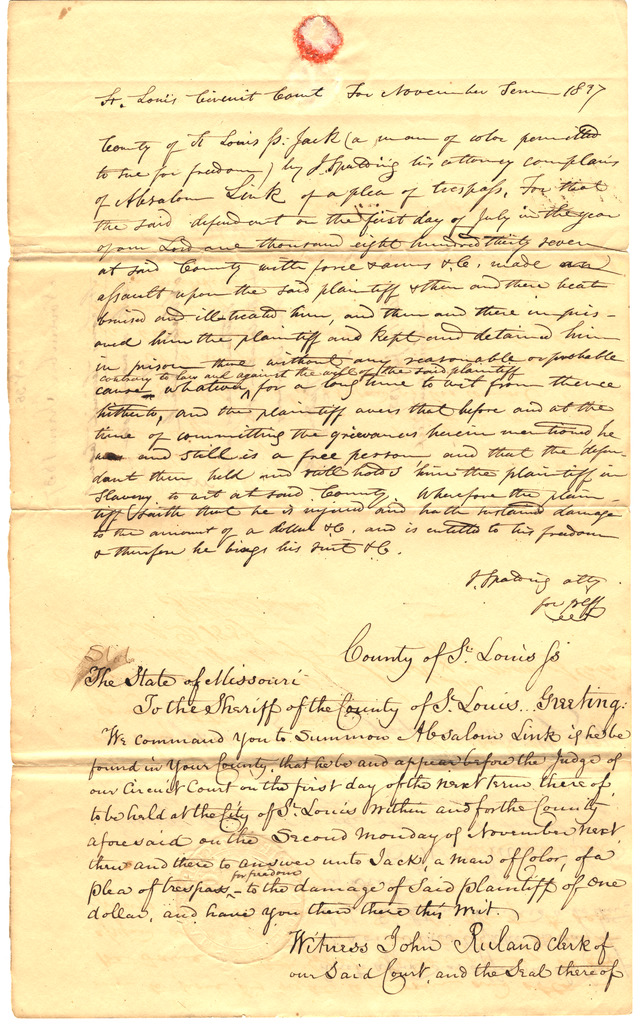 St. Louis Circuit Court For November Term 1837
County of St Louis Ss. Jack (a man of color permitted
to sue for freedom) by J. Spalding his attorney complains
of Absalom Link of a plea of trespass. For that
the said defendant on the first day of July in the year
of our Lord one thousand eight hundred thirty seven
at said County with force & arms &C. made an
assault upon the said plaintiff & then and there beat
bruised and illtreated him, and then and there impris-
oned him the plaintiff and kept and detained him
in prison there without any reasonable or probable
contrary to law and against the will of the said plaintiff
cause whatever for a long time to wit from thence
hitherto, and the plaintiff avers that before and at the
time of committing the grievances herein mentioned he
was and still is a free person and that the defen-
dant then held and still holds him the plaintiff in
Slavery to wit at said County. Wherefore the plain-
tiff saith that he is injured and hath sustained damage
to the amount of a dollar &C. and is entitled to his freedom
& therefore he brings his suit &C.
J Spalding atty
for plff
County of St. Louis Ss
The State of Missouri
To the Sheriff of the County of St. Louis.. Greeting:
We command You to Summon Absalom Link if he be
found in Your County, that he be and appear before the Judge of
our Circuit Court on the first day of the next term thereof
to be held at the City of St Louis within and for the County
aforesaid on the Second Monday of November next,
then and there to answer unto Jack, a man of Color, of a
for freedom
plea of trespass - to the damage of Said plaintiff of one
dollar, and have you then there this Writ.
Witness John Ruland Clerk of
our Said Court, and the Seal thereof